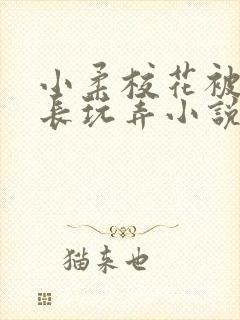 小柔校花被
长玩弄小説
猫来也